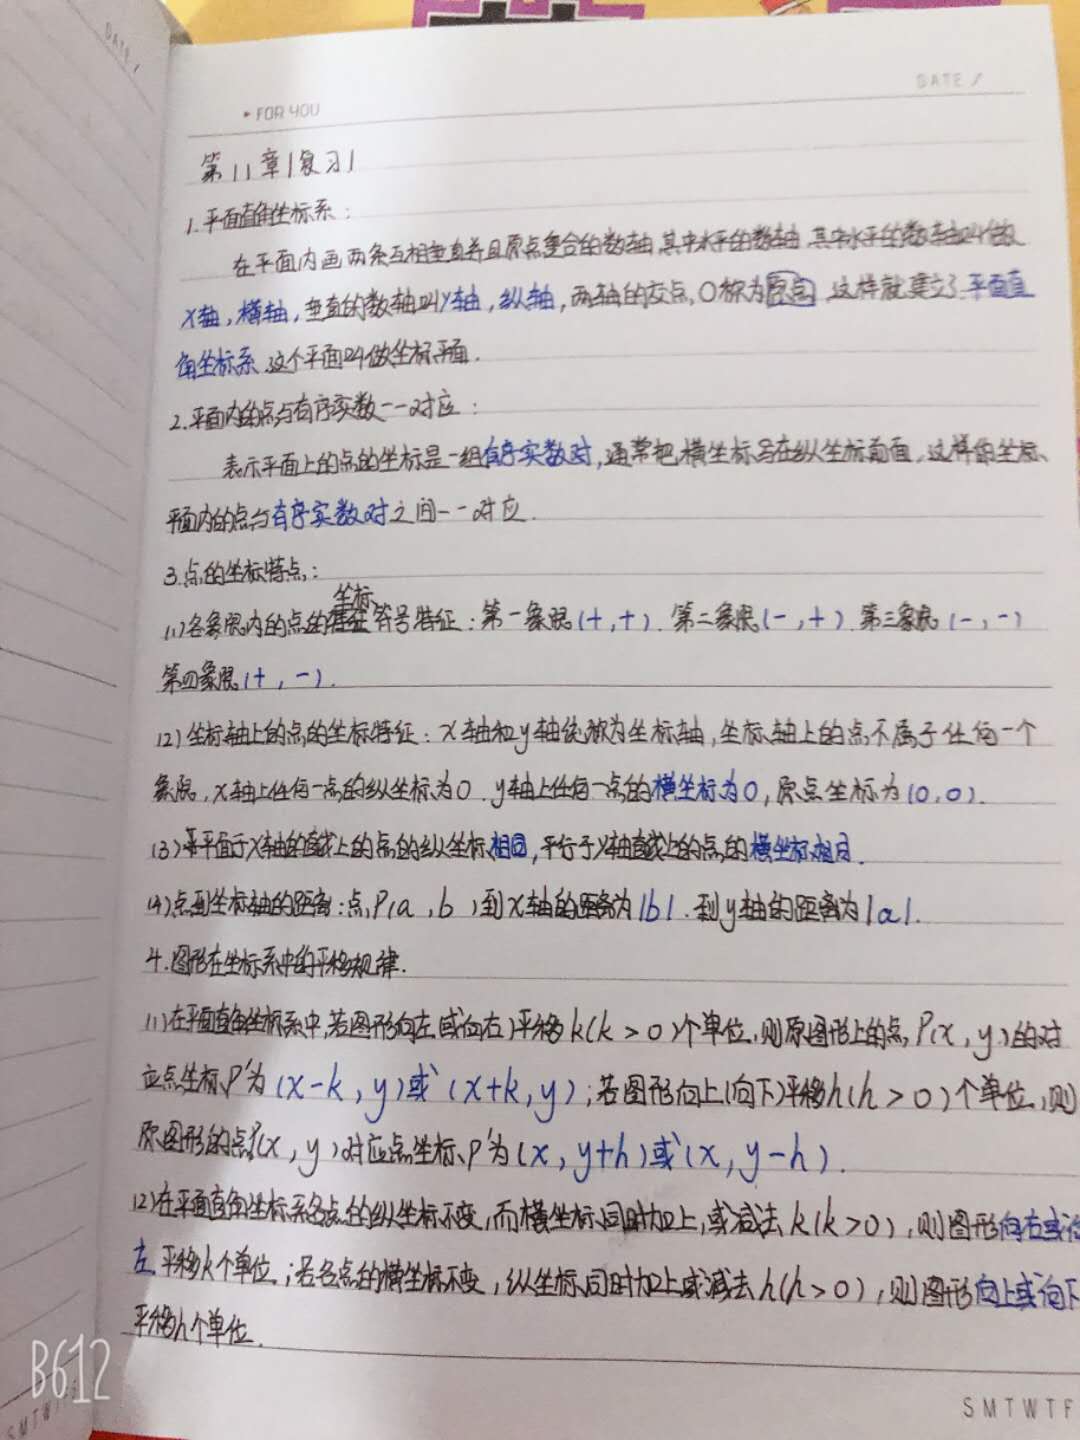 DATE /
FOR YOU
DATE /
第11章1复习1
1.平面直角坐标系：
在平面内画两条互相垂直并且原点重合的数轴,其中水平的数轴,其中水平的数轴叫做
X轴,横轴,垂直的数轴叫y轴,纵轴,两轴的交点,O称为原点,这样就建立了平面直
角坐标系.这个平面叫做坐标平面.
2.平面内的点与有序实数一一对应：
表示平面上的点的坐标是一组有序实数对,通常把横坐标写在纵坐标前面,这样的坐标、
平面内的点与有序实数对之间一一对应.
3.点的坐标特点：
坐标
(1)各象限内的点的符号特征：第一象限(+,+).第二象限(-,+).第三象限(-,-)
第四象限(+,-).
(2)坐标轴上的点的坐标特征：x轴和y轴统称为坐标轴,坐标轴上的点不属于任何一个
象限,x轴上任何一点的纵坐标为0.y轴上任何一点的横坐标为0,原点坐标为(0,0).
(3)平面于x轴的直线上的点的纵坐标相同,平行于y轴直线上的点的横坐标相同.
(4)点到坐标轴的距离：点P(a,b)到x轴的距离为|b|.到y轴的距离为|a|.
4.图形在坐标系中的平移规律.
(1)在平面直角坐标系中,若图形向左(或向右)平移k(k>0)个单位,则原图形上的点P(x,y)的对
应点坐标P'为(x-k,y)或(x+k,y);若图形向上(向下)平移h(h>0)个单位,则
原图形的点P(x,y)对应点坐标P'为(x,y+h)或(x,y-h).
(2)在平面直角坐标系各点的纵坐标不变,而横坐标同时加上,或减去k(k>0),则图形向右或向
左平移k个单位;若各点的横坐标不变,纵坐标同时加上或减去h(h>0),则图形向上或向下
平移h个单位.
B612
SMTWT
SMTWTF